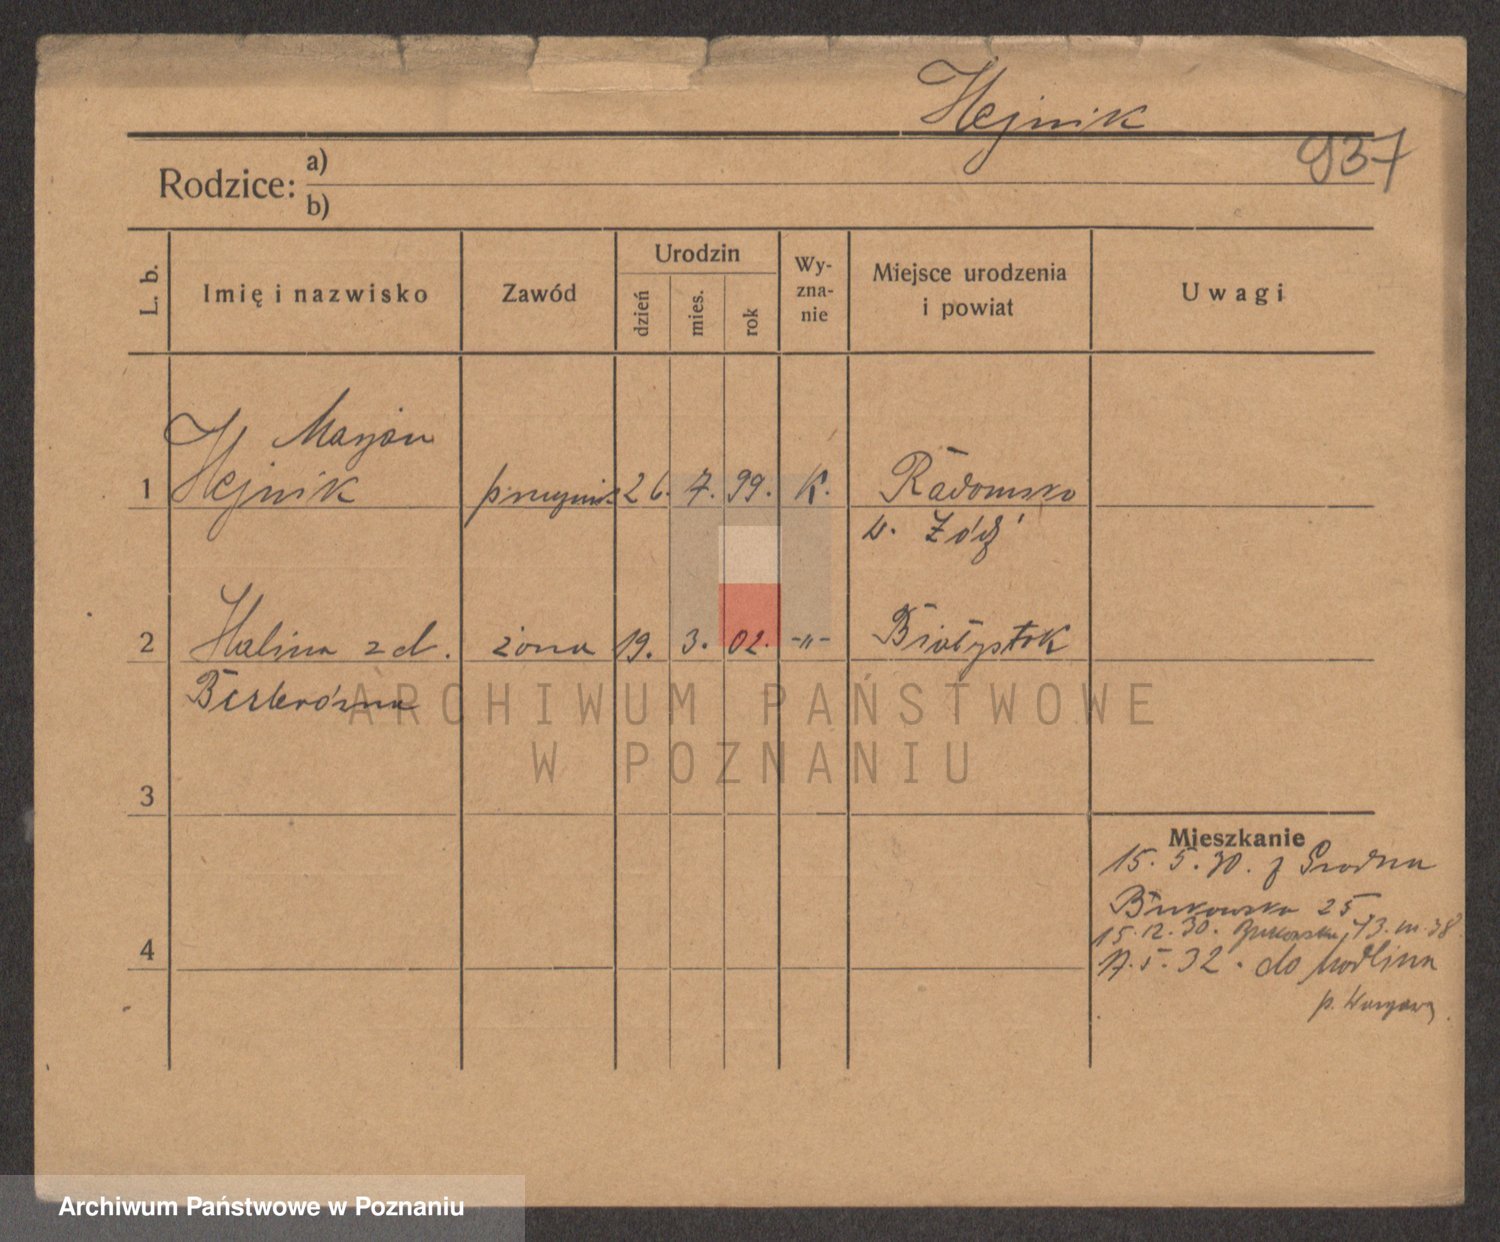 Hejnik
937
Rodzice: a)
b)
L. b.
Imię i nazwisko
Zawód
Urodzin
dzień
mies.
rok
Wy-
zna-
nie
Miejsce urodzenia
i powiat
Uwagi
Marjan
1 Hejnik 26. 7. 99. K. Radomsko
w. Łódź
2 Halina z d. żona 19. 3. 02. -"- Białystok
3
Mieszkanie
15. 5. 30. z Grodna
Bukowska 25
15.12.30. Bukowska 13. m. 38
4
17.5.32. do Modlina
ARCHIWUM PAŃSTWOWE
W POZNANIU
Archiwum Państwowe w Poznaniu